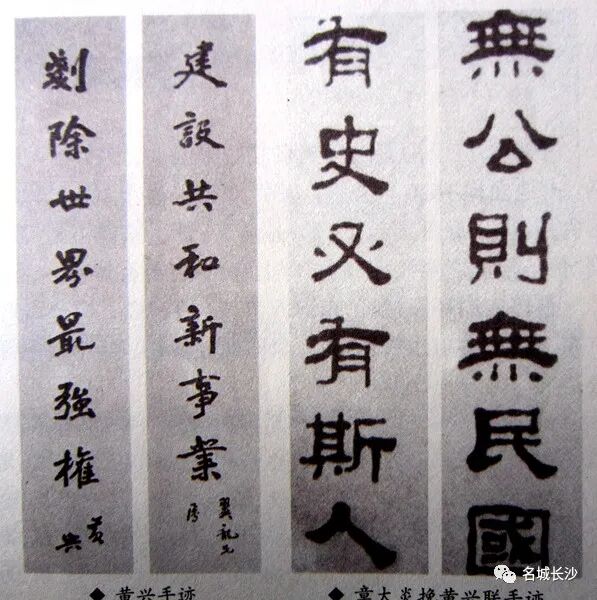 無公則無民國
有史必有斯人
建設共和新事業
除世界最強權
黄興
◆ 黄兴手迹
◆ 章太炎挽黄兴联手迹
名城长沙